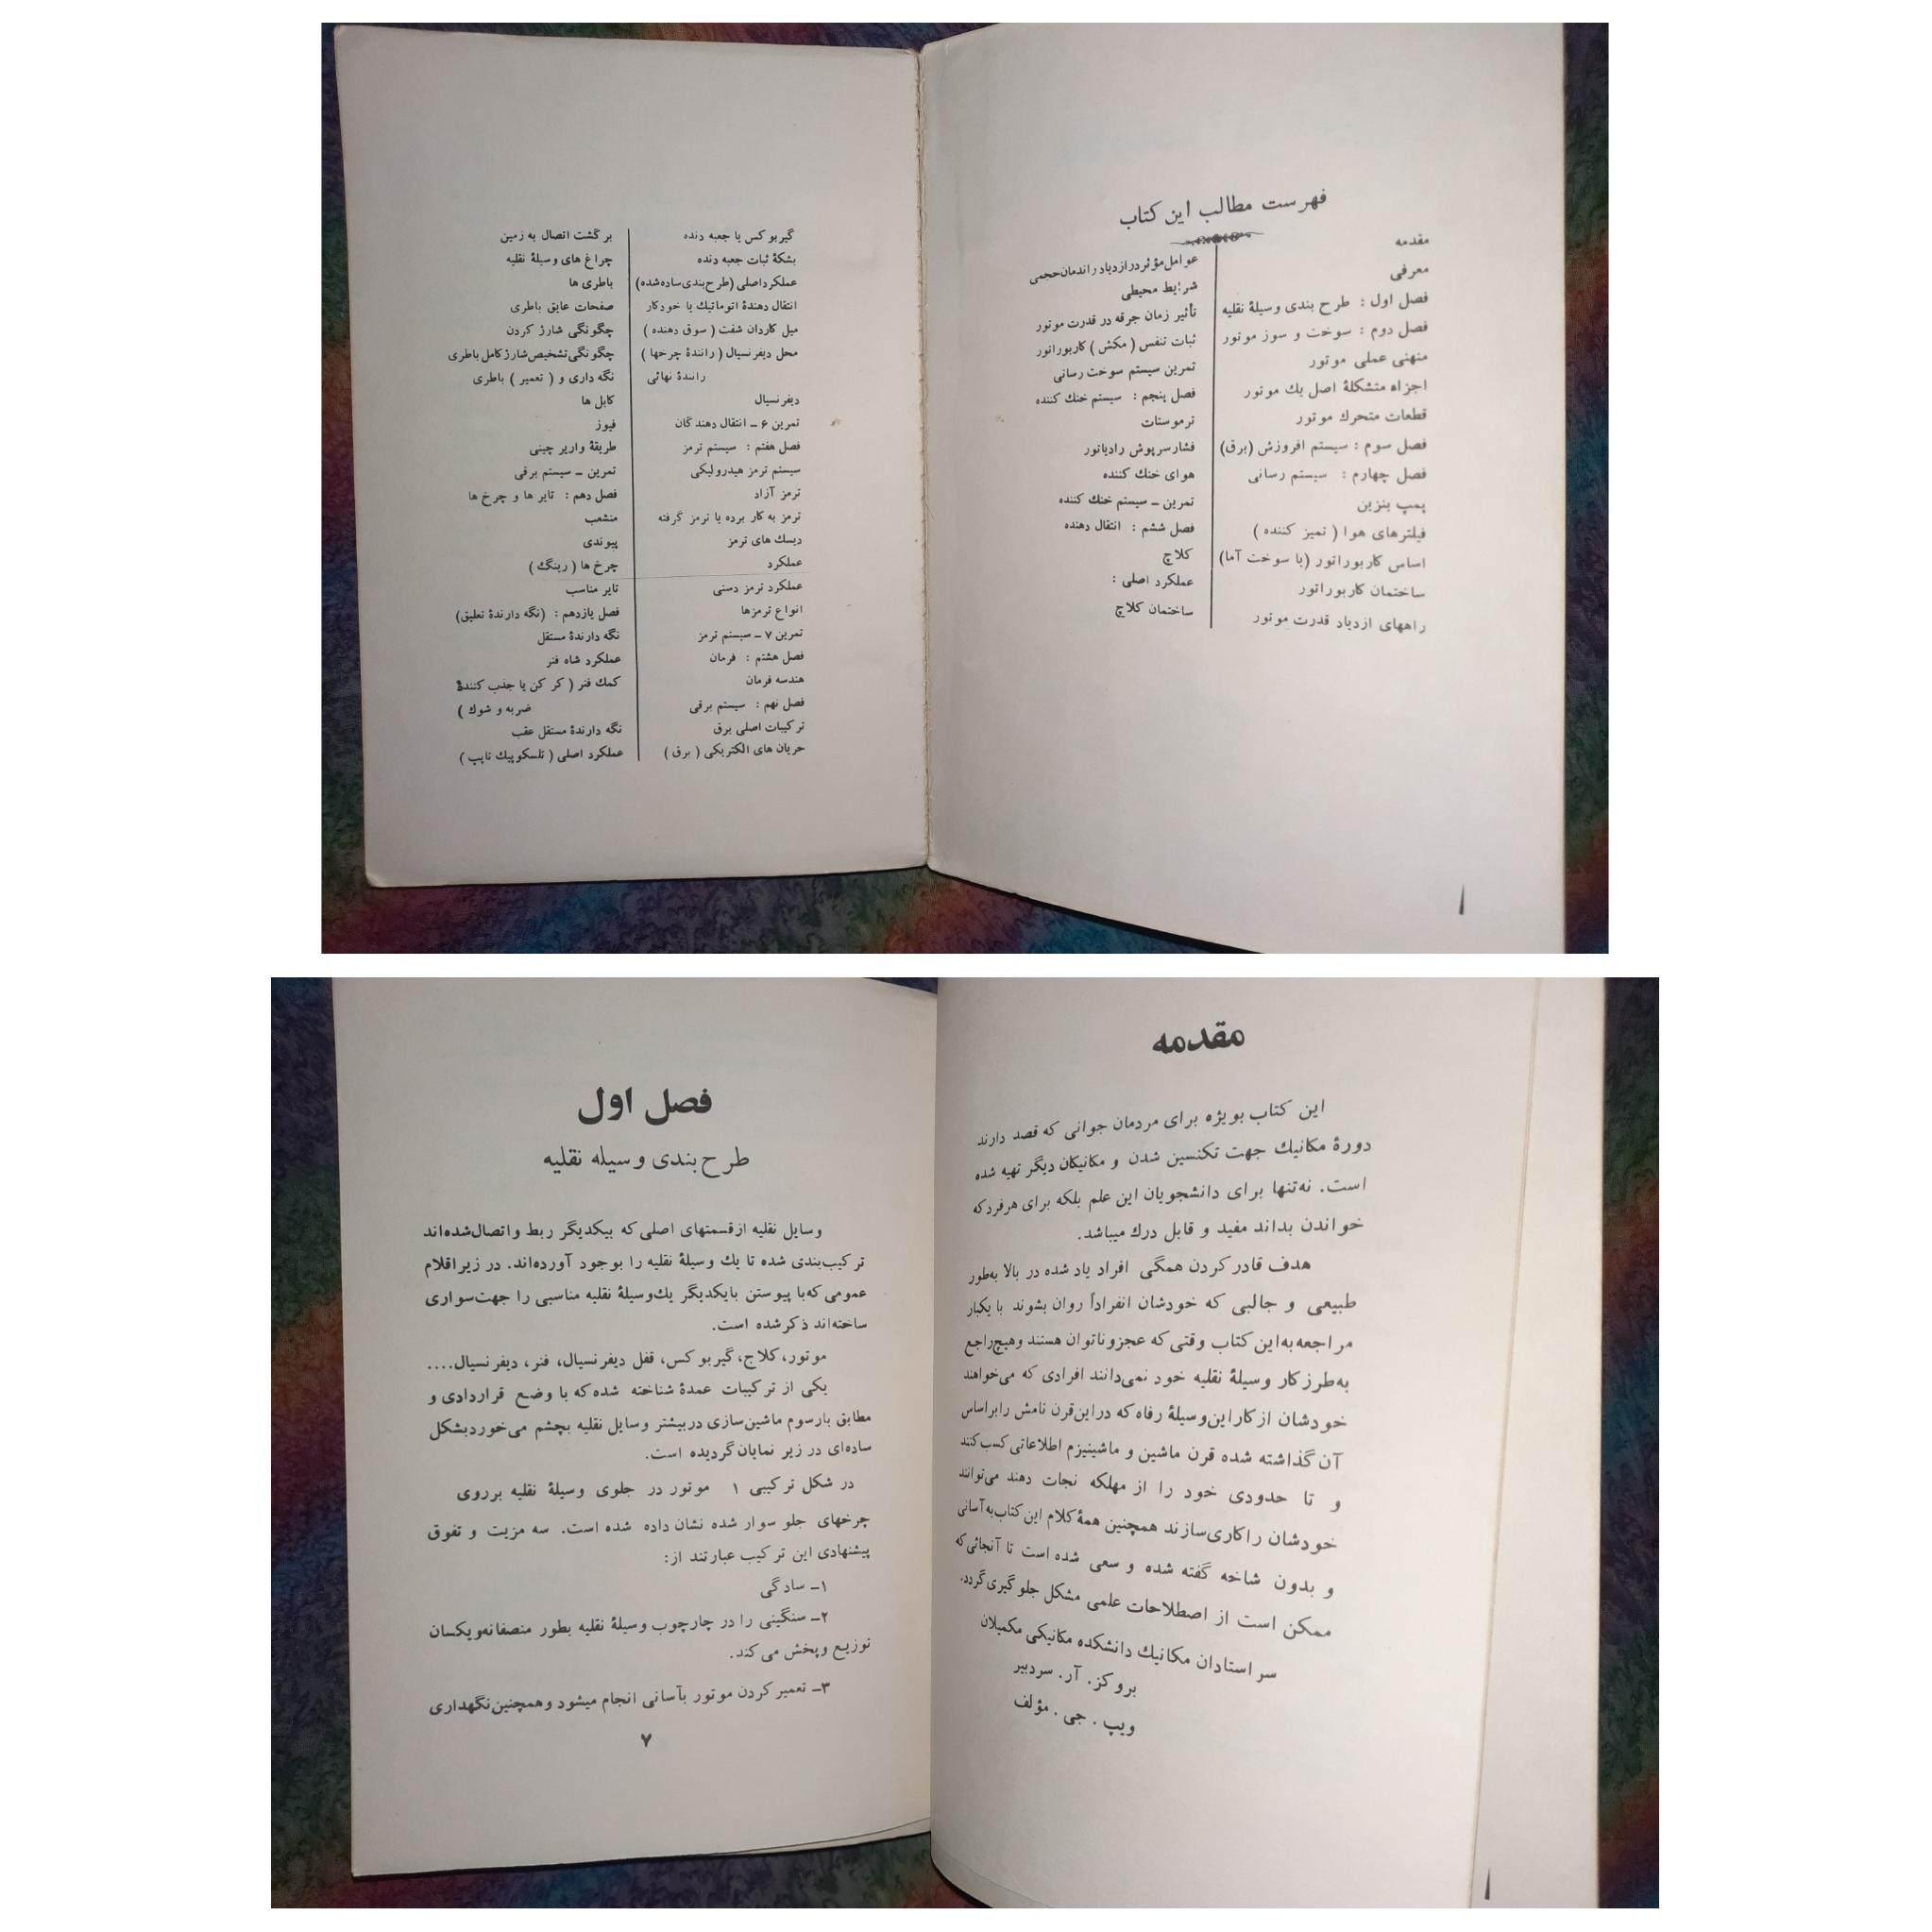 فهرست مطالب این کتاب
مقدمه
معرفی
فصل اول : طرح بندی وسیلهٔ نقلیه
فصل دوم : سوخت و سوز موتور
منهنی عملی موتور
اجزاء متشکلهٔ اصل یك موتور
قطعات متحرك موتور
فصل سوم : سیستم افروزش (برق)
فصل چهارم : سیستم رسانی
پمپ بنزین
فیلترهای هوا ( تمیز کننده )
اساس کاربوراتور (یا سوخت آما)
ساختمان کاربوراتور
راههای ازدیاد قدرت موتور
عوامل مؤثر در ازدیاد راندمان حجمی
شرایط محیطی
تأثیر زمان جرقه در قدرت موتور
ثبات تنفس ( مکش ) کاربوراتور
تمرین سیستم سوخت رسانی
فصل پنجم : سیستم خنك کننده
ترموستات
فشار سرپوش رادیاتور
هوای خنك کننده
تمرین ـ سیستم خنك کننده
فصل ششم : انتقال دهنده
کلاچ
عملکرد اصلی :
ساختمان کلاچ
گیربوکس یا جعبه دنده
بشکهٔ ثبات جعبه دنده
عملکرد اصلی (طرح بندی ساده شده)
انتقال دهندهٔ اتوماتیك یا خودکار
میل کاردان شفت ( سوق دهنده )
محل دیفرنسیال ( رانندهٔ چرخها )
رانندهٔ نهائی
دیفرنسیال
تمرین ۶ ـ انتقال دهندگان
فصل هفتم : سیستم ترمز
سیستم ترمز هیدرولیکی
ترمز آزاد
ترمز به کار برده یا ترمز گرفته
دیسك های ترمز
عملکرد
عملکرد ترمز دستی
انواع ترمزها
تمرین ۷ ـ سیستم ترمز
فصل هشتم : فرمان
هندسه فرمان
فصل نهم : سیستم برقی
ترکیبات اصلی برق
جریان های الکتریکی ( برق )
برگشت اتصال به زمین
چراغ های وسیلهٔ نقلیه
باطری ها
صفحات عایق باطری
چگونگی شارژ کردن
چگونگی تشخیص شارژ کامل باطری
نگه داری و ( تعمیر ) باطری
کابل ها
فیوز
طریقهٔ وایر چینی
تمرین ـ سیستم برقی
فصل دهم : تایر ها و چرخ ها
منشعب
پیوندی
چرخ ها ( رینگ )
تایر مناسب
فصل یازدهم : (نگه دارندهٔ تعلیق)
نگه دارندهٔ مستقل
عملکرد شاه فنر
کمك فنر ( کر کن یا جذب کنندهٔ
ضربه و شوك )
نگه دارندهٔ مستقل عقب
عملکرد اصلی ( تلسکوپیك تایپ )
مقدمه
این کتاب بویژه برای مردمان جوانی که قصد دارند
دورهٔ مکانیك جهت تکنسین شدن و مکانیکان دیگر تهیه شده
است. نه‌تنها برای دانشجویان این علم بلکه برای هرفرد که
خواندن بداند مفید و قابل درك میباشد.
هدف قادر کردن همگی افراد یاد شده در بالا به‌طور
طبیعی و جالبی که خودشان انفراداً روان بشوند با یکبار
مراجعه به‌این کتاب وقتی که عجز و ناتوان هستند و هیچ راجع
به‌طرز کار وسیلهٔ نقلیه خود نمی‌دانند افرادی که می‌خواهند
خودشان از کار این وسیلهٔ رفاه که در این قرن نامش را براساس
آن گذاشته شده قرن ماشین و ماشینیزم اطلاعاتی کسب کنند
و تا حدودی خود را از مهلکه نجات دهند می‌توانند
خودشان را کاری سازند همچنین همهٔ کلام این کتاب به‌آسانی
و بدون شاخه گفته شده و سعی شده است تا آنجائی که
ممکن است از اصطلاحات علمی مشکل جلوگیری گردد.
سر استادان مکانیك دانشکده مکانیکی مکمیلان
بروکز. آر. سردبیر
ویپ . جی . مؤلف
فصل اول
طرح بندی وسیله نقلیه
وسایل نقلیه از قسمتهای اصلی که بیکدیگر ربط و اتصال شده‌اند
ترکیب‌بندی شده تا یك وسیلهٔ نقلیه را بوجود آورده‌اند. در زیر اقلام
عمومی که با پیوستن بایکدیگر یك وسیلهٔ نقلیه مناسبی را جهت سواری
ساخته‌اند ذکر شده است.
موتور، کلاج، گیربوکس، قفل دیفرنسیال، فنر، دیفرنسیال....
یکی از ترکیبات عمدهٔ شناخته شده که با وضع قراردادی و
مطابق بارسوم ماشین‌سازی در بیشتر وسایل نقلیه بچشم می‌خورد بشکل
ساده‌ای در زیر نمایان گردیده است.
در شکل ترکیبی ۱ موتور در جلوی وسیلهٔ نقلیه برروی
چرخهای جلو سوار شده نشان داده شده است. سه مزیت و تفوق
پیشنهادی این ترکیب عبارتند از:
۱ـ سادگی
۲ـ سنگینی را در چارچوب وسیلهٔ نقلیه بطور منصفانه ویکسان
توزیع و پخش می کند.
۳ـ تعمیر کردن موتور بآسانی انجام میشود وهمچنین نگهداری
۷